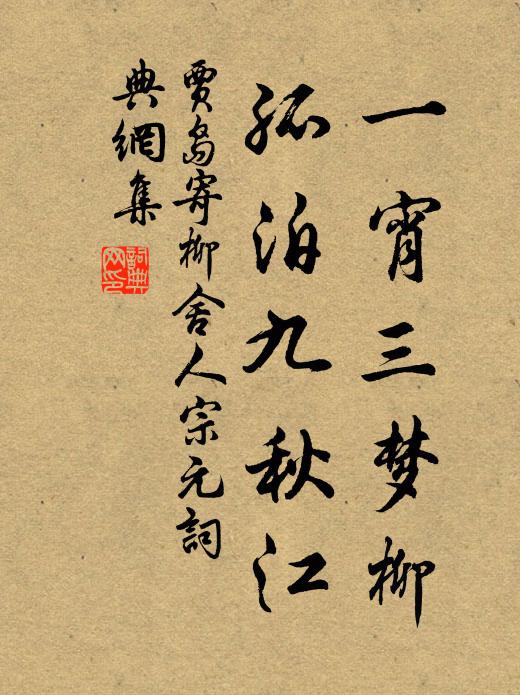 一宵三梦柳
孤泊九秋江
賈島寄柳舍人宗元詞
典網集
詞典网印